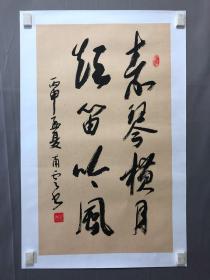 素琴横月
短笛吟风
丙申孟夏雨云书